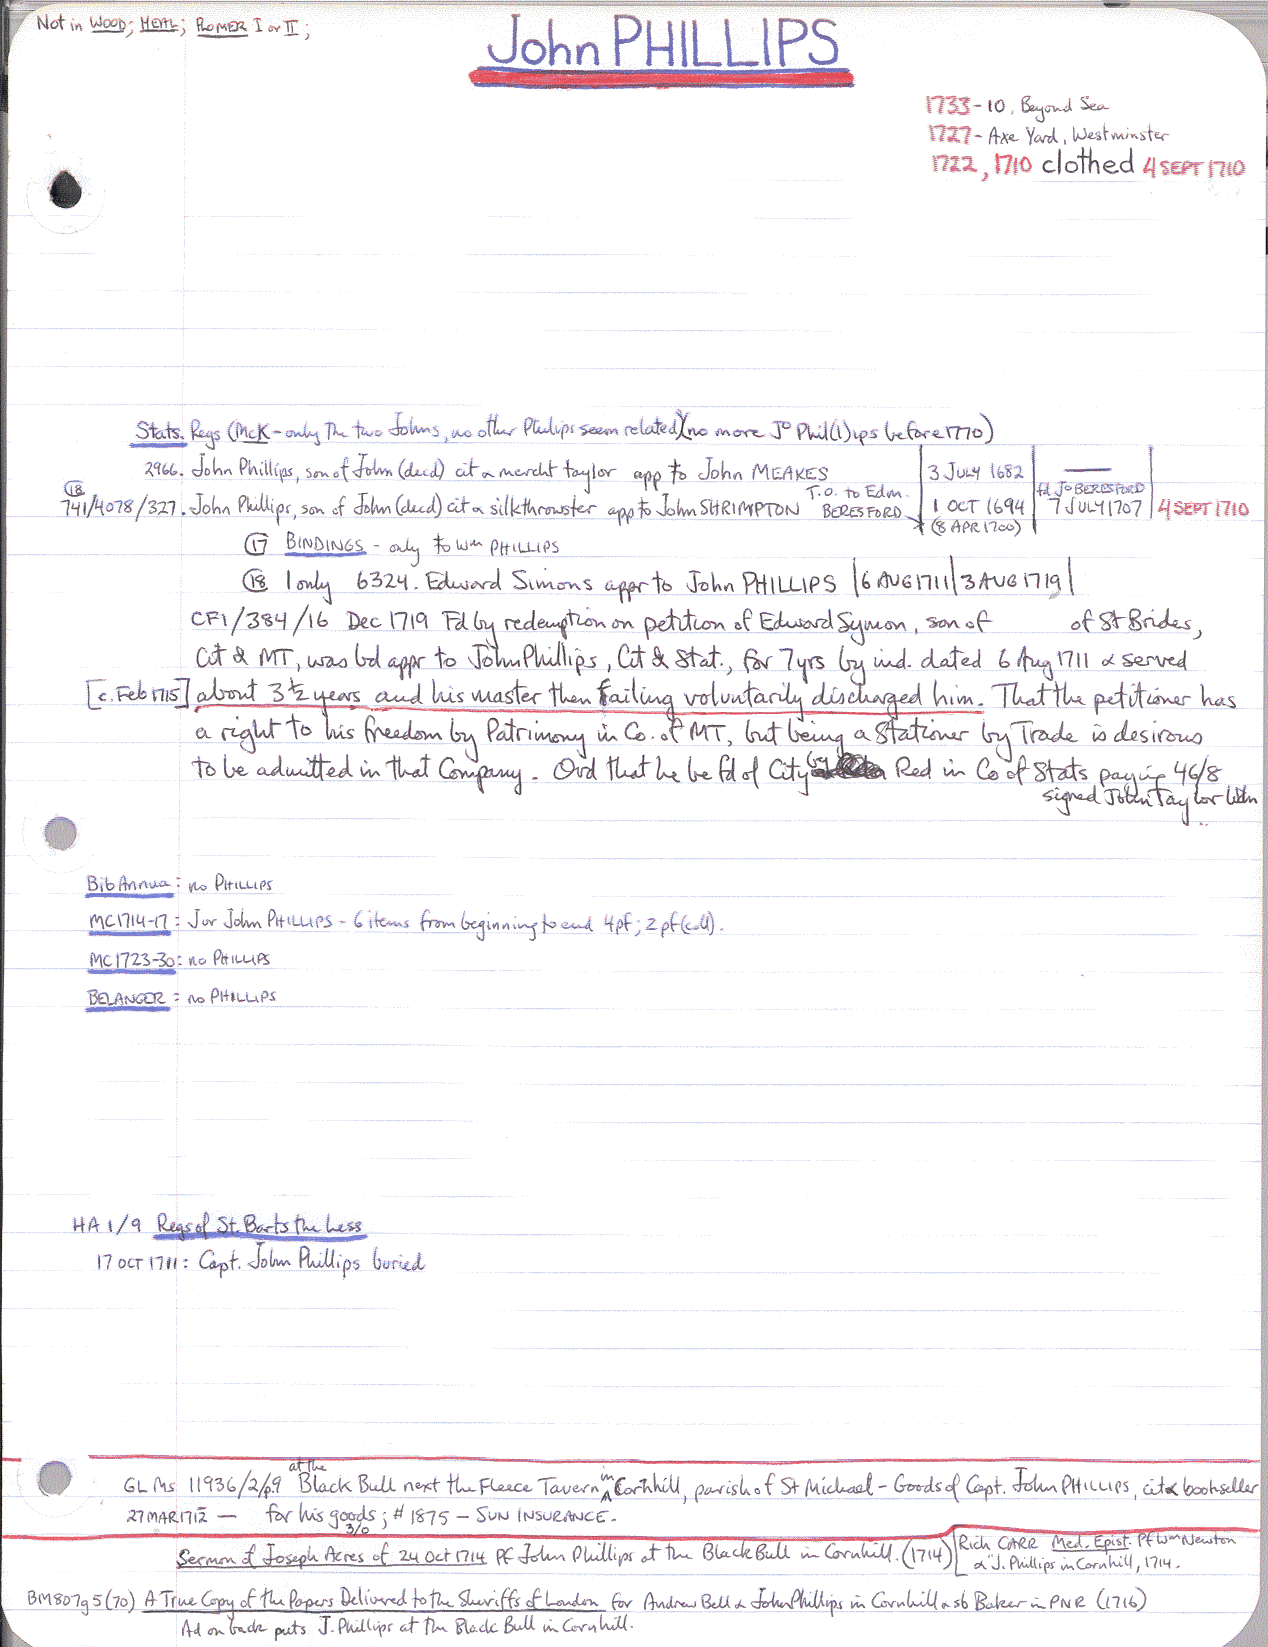 Not in WOOD; HEAL; PLOMER I or II;
John PHILLIPS
1733 - 10, Beyond Sea
1727 - Axe Yard, Westminster
1722, 1710 clothed 4 SEPT 1710
Stats. Regs (McK - only the two Johns, no other Phillips seem related)(no more Jo Phil(l)ips before 1770)
2966. John Phillips, son of John (decd) cit & mercht taylor app to John MEAKES | 3 JULY 1682 | —— |
(18) 741/4078/327. John Phillips, son of John (decd) cit & silkthrowster app to John SHRIMPTON T.O. to Edm. BERESFORD | 1 OCT 1694 (8 APR 1700) | fd Jo BERESFORD 7 JULY 1707 | 4 SEPT 1710
(17) BINDINGS - only to Wm PHILLIPS
(18) 1 only 6324. Edward Simons appr to John PHILLIPS |6 AUG 1711|3 AUG 1719|
CF1/384/16 Dec 1719 Fd by redemption on petition of Edward Symon, son of of St Brides,
Cit & MT, was bd appr to John Phillips, Cit & Stat., for 7 yrs by ind. dated 6 Aug 1711 & served
[c. Feb 1715] about 3½ years and his master then failing voluntarily discharged him. That the petitioner has
a right to his freedom by Patrimony in Co. of MT, but being a Stationer by Trade is desirous
to be admitted in that Company. Ord that he be fd of City by Red in Co of Stats paying 46/8
signed John Taylor Wdn
Bib Annua: no PHILLIPS
MC1714-17: Jur John PHILLIPS - 6 items from beginning to end 4pf; 2pf (coll).
MC1723-30: no PHILLIPS
BELANGER: no PHILLIPS
HA 1/9 Regs of St. Barts the Less
17 OCT 1711: Capt. John Phillips buried
GL Ms 11936/2/p.9 at the Black Bull next the Fleece Tavern in Cornhill, parish of St Michael - Goods of Capt. John PHILLIPS, cit & bookseller
27 MAR 1712 — for his goods; #1875 - SUN INSURANCE.
3/0
Sermon of Joseph Acres of 24 Oct 1714 Pf John Phillips at the Black Bull in Cornhill. (1714)
Rich CARR Med. Epist. Pf Wm Newton
& "J. Phillips in Cornhill, 1714.
BM807g5(70) A True Copy of the Papers Delivered to the Sheriffs of London for Andrew Bell & John Phillips in Cornhill & sb Baker in PNR (1716)
Ad on back puts J. Phillips at the Black Bull in Cornhill.